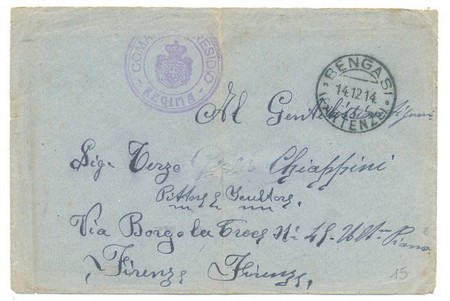 COMANDO PRESIDIO
REGINA
BENGASI
14.12.14
(PARTENZA)
Al Gentilissimo Signor
Sig. Terzo Chiappini
Pittore Scultore
Via Borgo la Croce No 45 Ulto Piano
Firenze Firenze
15